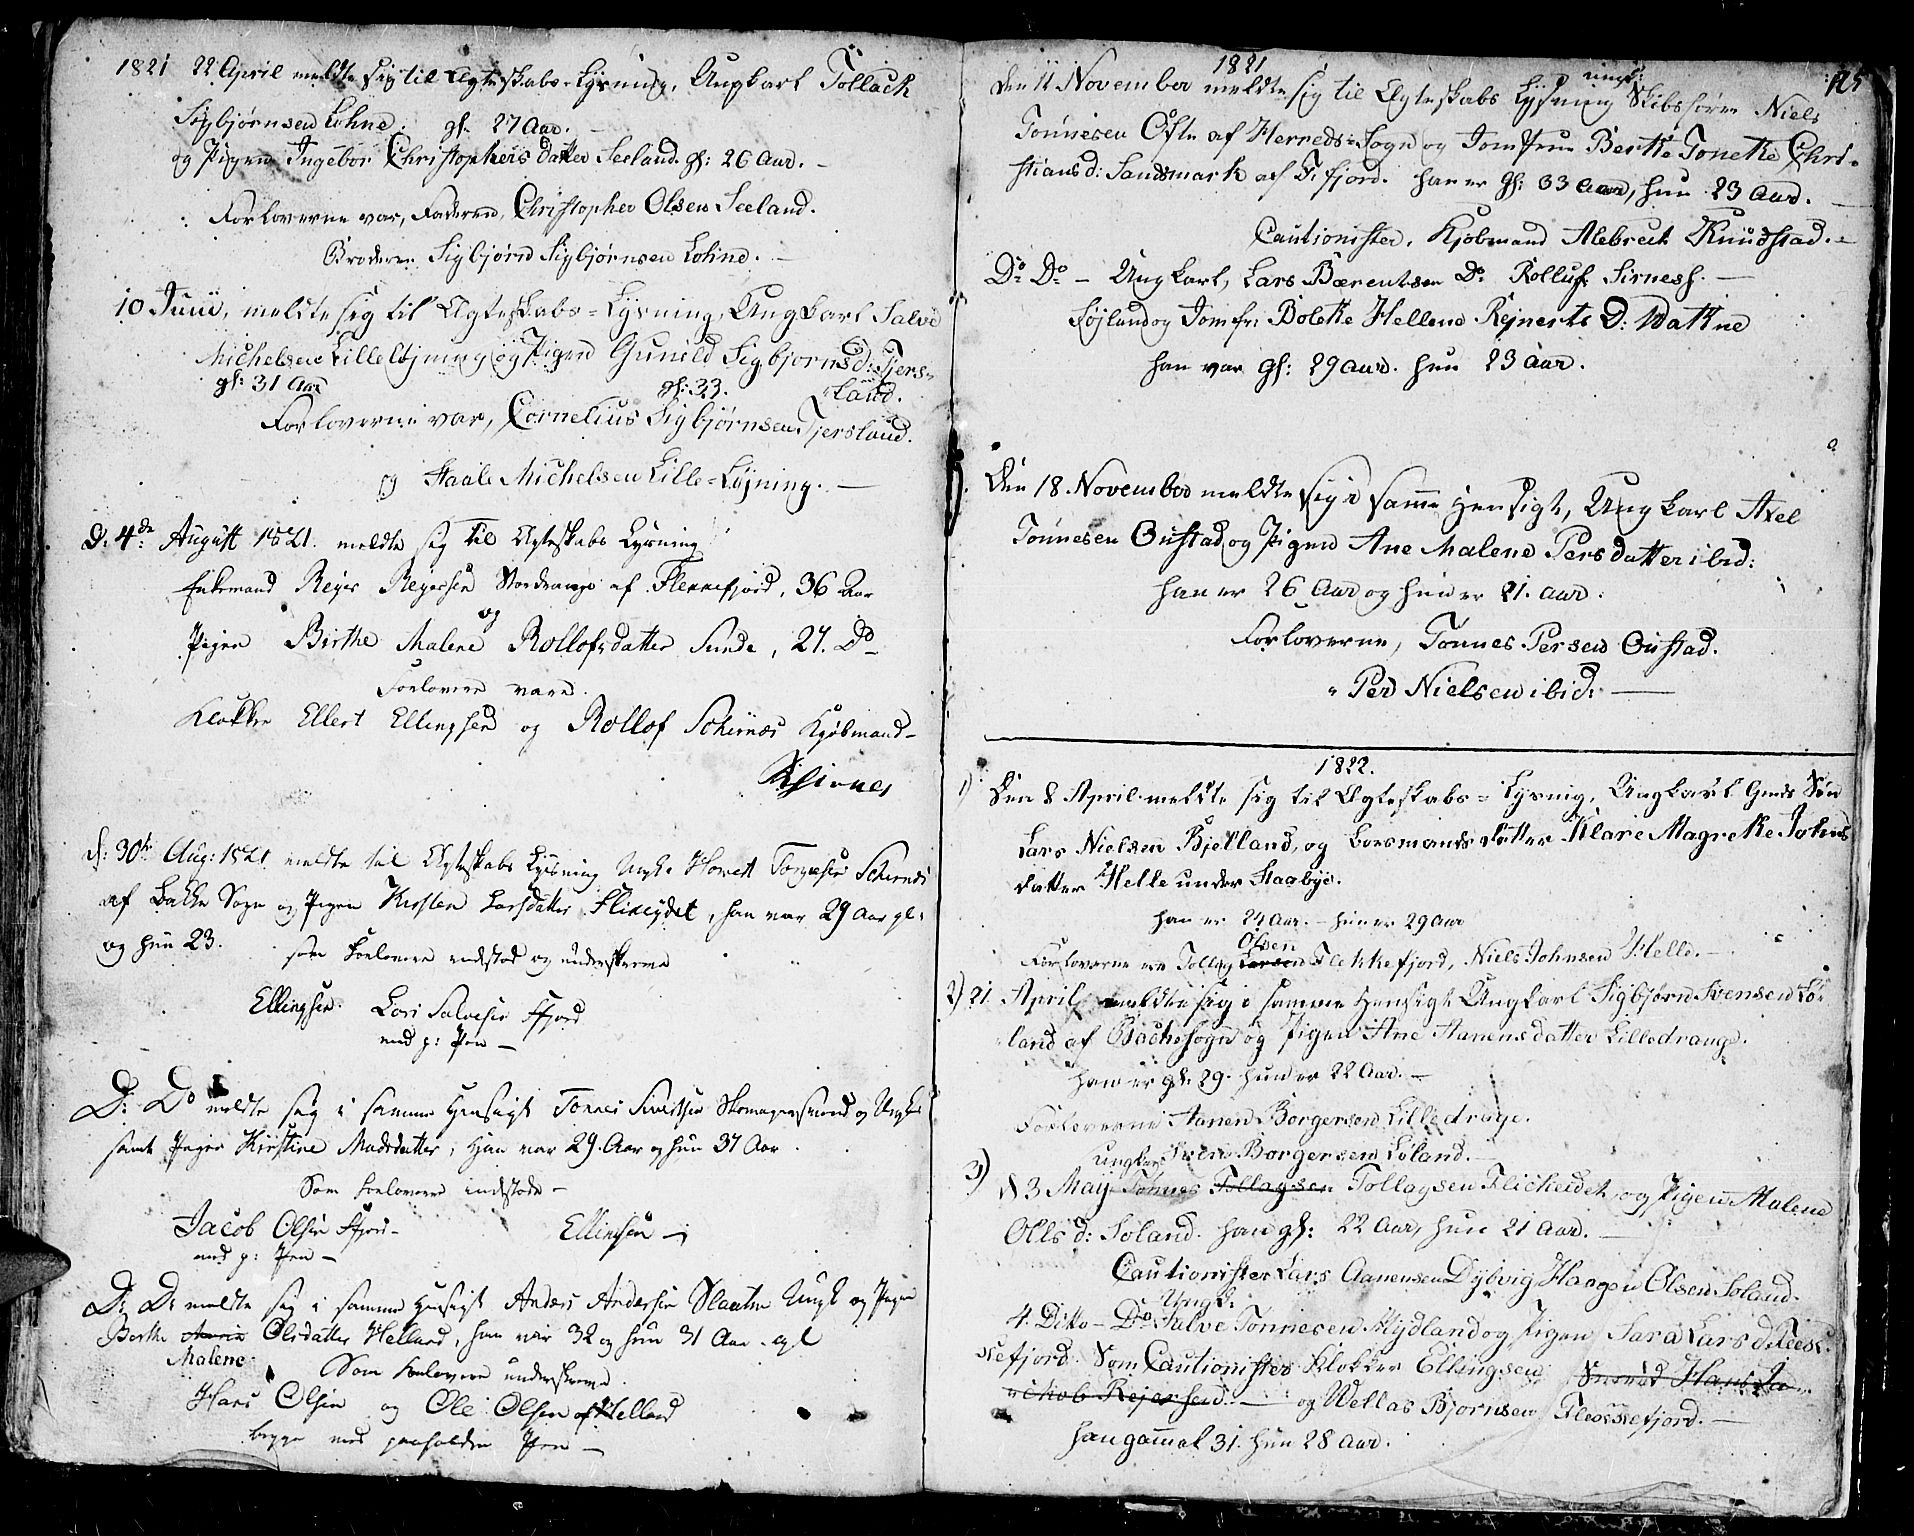 1821 22 April meldte sig til Ægteskabs-Lysning, Ungkarl Tollack
Sigbjørnsen Lohne, gl. 27 Aar. –
og Pigen Ingebor Christophersdatter Seeland gl: 26 Aar. –
Forloverne var, Faderen, Christopher Olsen Seeland.
Broderen Sigbjørn Sigbjørnsen Lohne. –
10 Junii, meldte sig til Ægteskabs-Lysning, Ungkarl Salve
Michelsen Lilleløjning og Pigen Gunild Sigbjørnsd: Tjers-
gl: 31 Aar gl: 33. land.
Forloverne var, Cornelius Sigbjørnsen Tjersland.
og Staale Michelsen Lille-Løjning. –
D. 4de August 1821. meldte sig til Ægteskabs Lysning
Enkemand Reyer Reyersen Stordrange af Flekkefjord, 36 Aar
og
Pigen Birthe Malene Rollofsdatter Sunde, 27. Do
Forlovere vare
Klokker Ellert Ellingsen og Rollof Schirnæs Kjøbmand–
d: 30te Aug: 1821 meldte til Ægteskabs Lysning Ungk. Tønnesen Schirnes
af Bakke Sogn og Pigen Kirsten Larsdatter Flikeydet, han var 29 Aar gl:
og hun 23. som Forlovere indstod og underskreve
Ellingsen. Lars Salvesen Ffjord
med p: Pen –
D: Do meldte sig i samme Hensigt Tønnes Sivertsen og Ungkarl
samt Pigen Kirstine Madsdatter, han var 29. Aar og hun 37 Aar
Som Forlovere indstode –
Jacob Olsen Ffjord – Ellingsen –
med p: Pen –
D: D: meldte sig i samme Hensigt Anders Andersen Ungk og Pigen
Berthe Olsdatter Helland, han var 32 og hun 31 Aar gl
Malene Som Forlovere underskreve.
Hans Olsen og Ole Olsen af Helland
begge med paaholden Pen –
125
1821
Den 11 November meldte sig til Ægteskabs Lysning Ungk: Skibsfører Niels
Tønnesen Ofte af Herreds-Sogn og Jomfrue Berthe Tonette Chri-
stiansd: Sandsmark af F:fjord. han er gl: 33 Aar, hun 23 Aar. –
Cautionister, Kjøbmand Alebrect Knudstad. –
Do Do – Ungkarl, Lars Bærentsen Do Rolluf Sirness. –
Føjland og Jomfr: Bolette Hellene Rejnerts D: Watne
han var gl: 29 Aar. hun 23 Aar.
Den 18 November meldte sig i samme Hensigt, Ungkarl Axel
Tønnesen Oustad og Pigen Ane Malene Persdatter ibid:
han er 26 Aar og hun er 21. Aar.
Forloverne, Tønnes Persen Oustad.
" Per Nielsen ibid: –
1822.
1) Den 8 April meldte sig til Ægteskabs-Lysnig, Ungkarl Søn
Lars Nielsen Bjelland, og Lensmands Datter Klare Magrethe Johns
datter Helle under Staabye.
han er 24 Aar. – hun er 29 Aar
Olsen
Forloverne ere Tollag Larsen Flekkefjord, Niels Johnsen Helle. –
2) 21 April meldte sig i samme Hensigt Ungkarl Sigbjørn Svensen Lø-
land af Backe Sogn og Pigen Ane Aanensdatter Lilledrange.
han er gl: 29. hun er 22 Aar. –
Forloverne Aanen Borgersen Lilledrage.
Sven Borgersen Løland. –
Ungkarl
3) d 3 May Tønnes Tollagsen Tollagsen Flickeidet, og Pigen Malene
Olls d: Soland. han gl: 22 Aar, hun 21 Aar. –
Cautionister Lars Aanensen Dybvig Haagen Olsen Soland.
Ungk:
4. Dito – Do Salve Tønnesen Mydland og Pigen Sara Lars d: Fleck-
kefjord. Som Cautionister Klokker Ellingsen Hans Ja-
chob Rejersen. – og Wellas Bjørnsen Fleckkefjord. –
han gammel 31. hun 28 Aar.